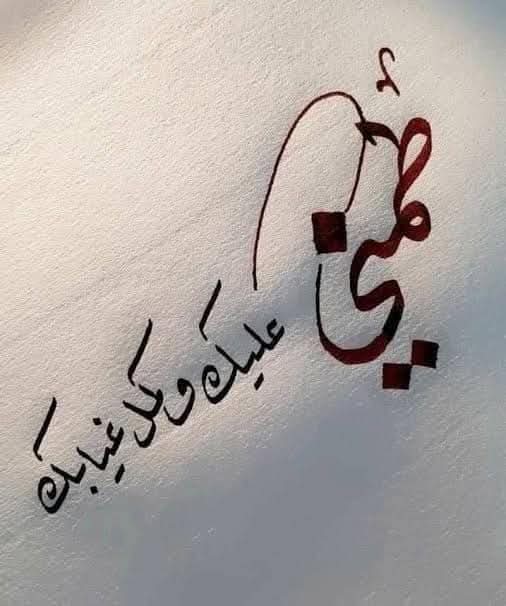 طمني
عليك وكل غيابك